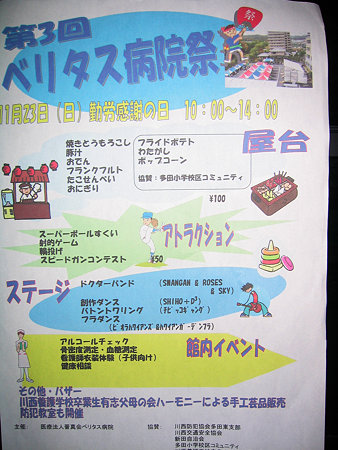 祭
第3回
ベリタス病院祭
11月23日（日）勤労感謝の日　10：00～14：00
屋台
焼きとうもろこし
豚汁
おでん
フランクフルト
たこせんべい
おにぎり
フライドポテト
わたがし
ポップコーン
協賛：多田小学校区コミュニティ
¥100
アトラクション
スーパーボールすくい
射的ゲーム
輪投げ
スピードガンコンテスト
¥50
ステージ
ドクターバンド　（SWANGAN & ROSES & SKY）
創作ダンス　（SHIHO+D³）
バトントワリング　（チビっコギャング）
フラダンス
館内イベント
アルコールチェック
骨密度測定・血糖測定
看護師衣装体験（子供向け）
健康相談
その他・バザー
川西養護学校卒業生有志父母の会ハーモニーによる手工芸品販売
防犯教室も開催
主催：　医療法人晋真会ベリタス病院
協賛：　川西防犯協会多田東支部
川西交通安全協会
新田自治会
多田小学校区コミュニティ